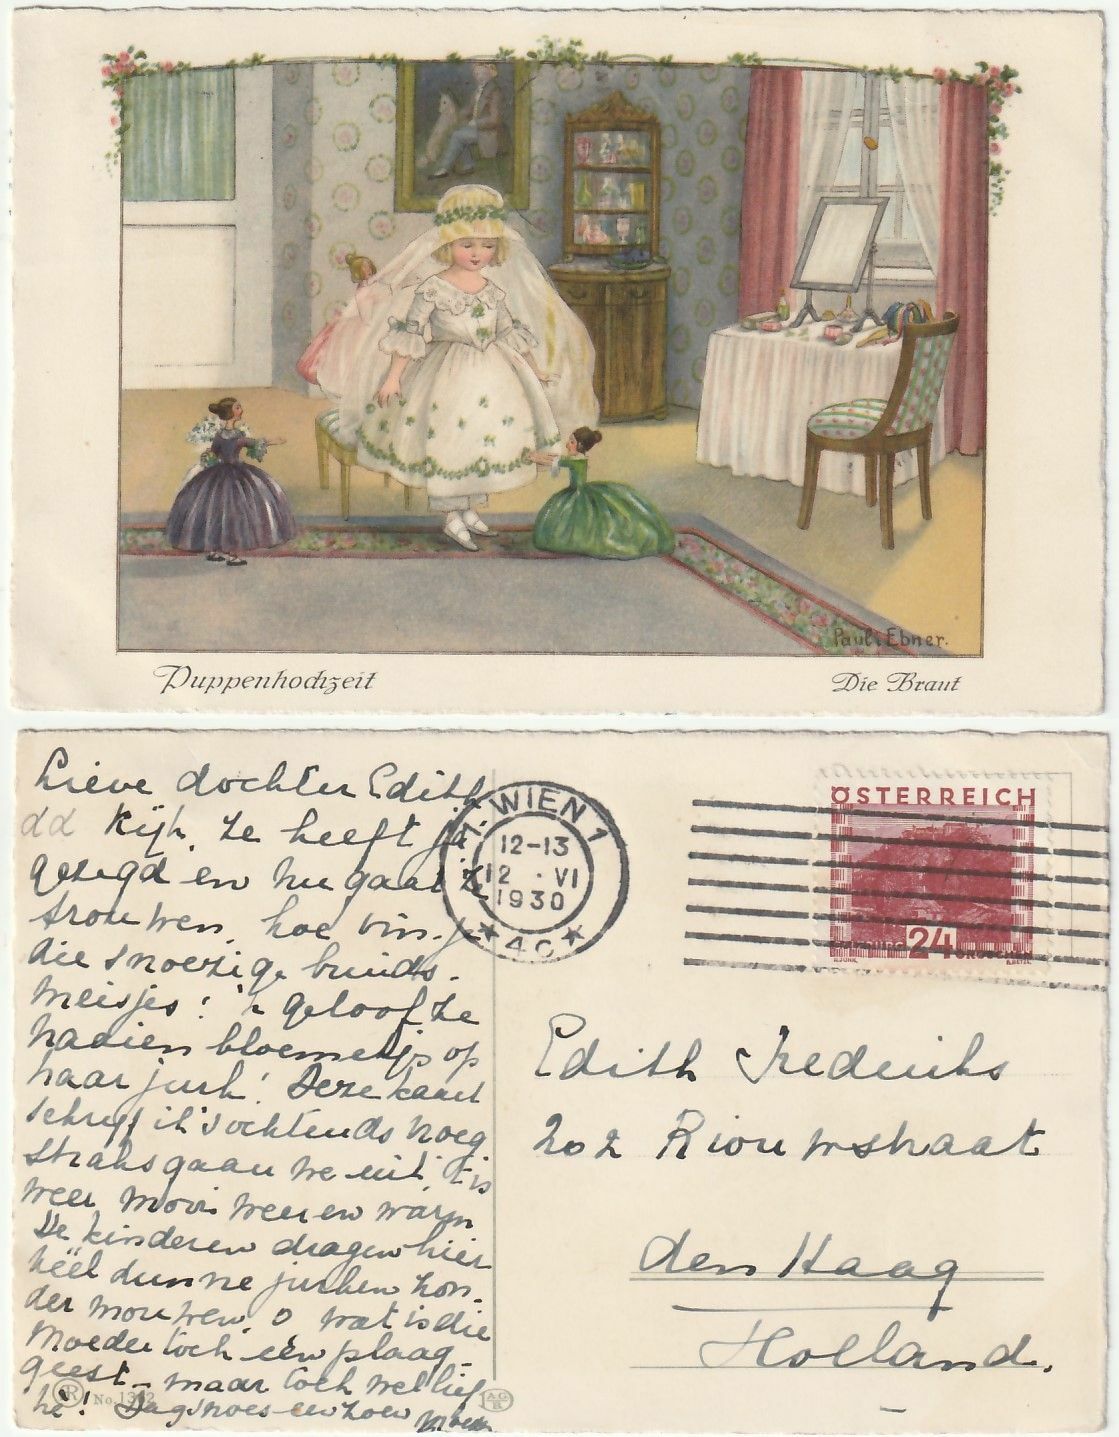 Pauli Ebner.
Puppenhochzeit
Die Braut
Lieve dochter Edith
dd Kijk, ze heeft ja
gezegd en nu gaat ze
trouwen, hoe vin je
die snoezige bruids-
meisjes! 'k geloof ze
naaien bloemetjes op
haar jurk! Deze kaart
schrijf ik 's ochtends vroeg
straks gaan we uit, 't is
weer mooi weer en warm
De kinderen dragen hier
héél dunne jurken zon-
der mouwen, o wat is die
Moeder toch een plaag-
geest - maar toch wel lief
hè! Dag snoes een zoen Moes
WIEN 1
12-13
12 . VI
1930
* 4C *
ÖSTERREICH
24
GROSCHEN
Edith Frederiks
202 Riouwstraat
den Haag
Holland.
R No. 1362
AG R